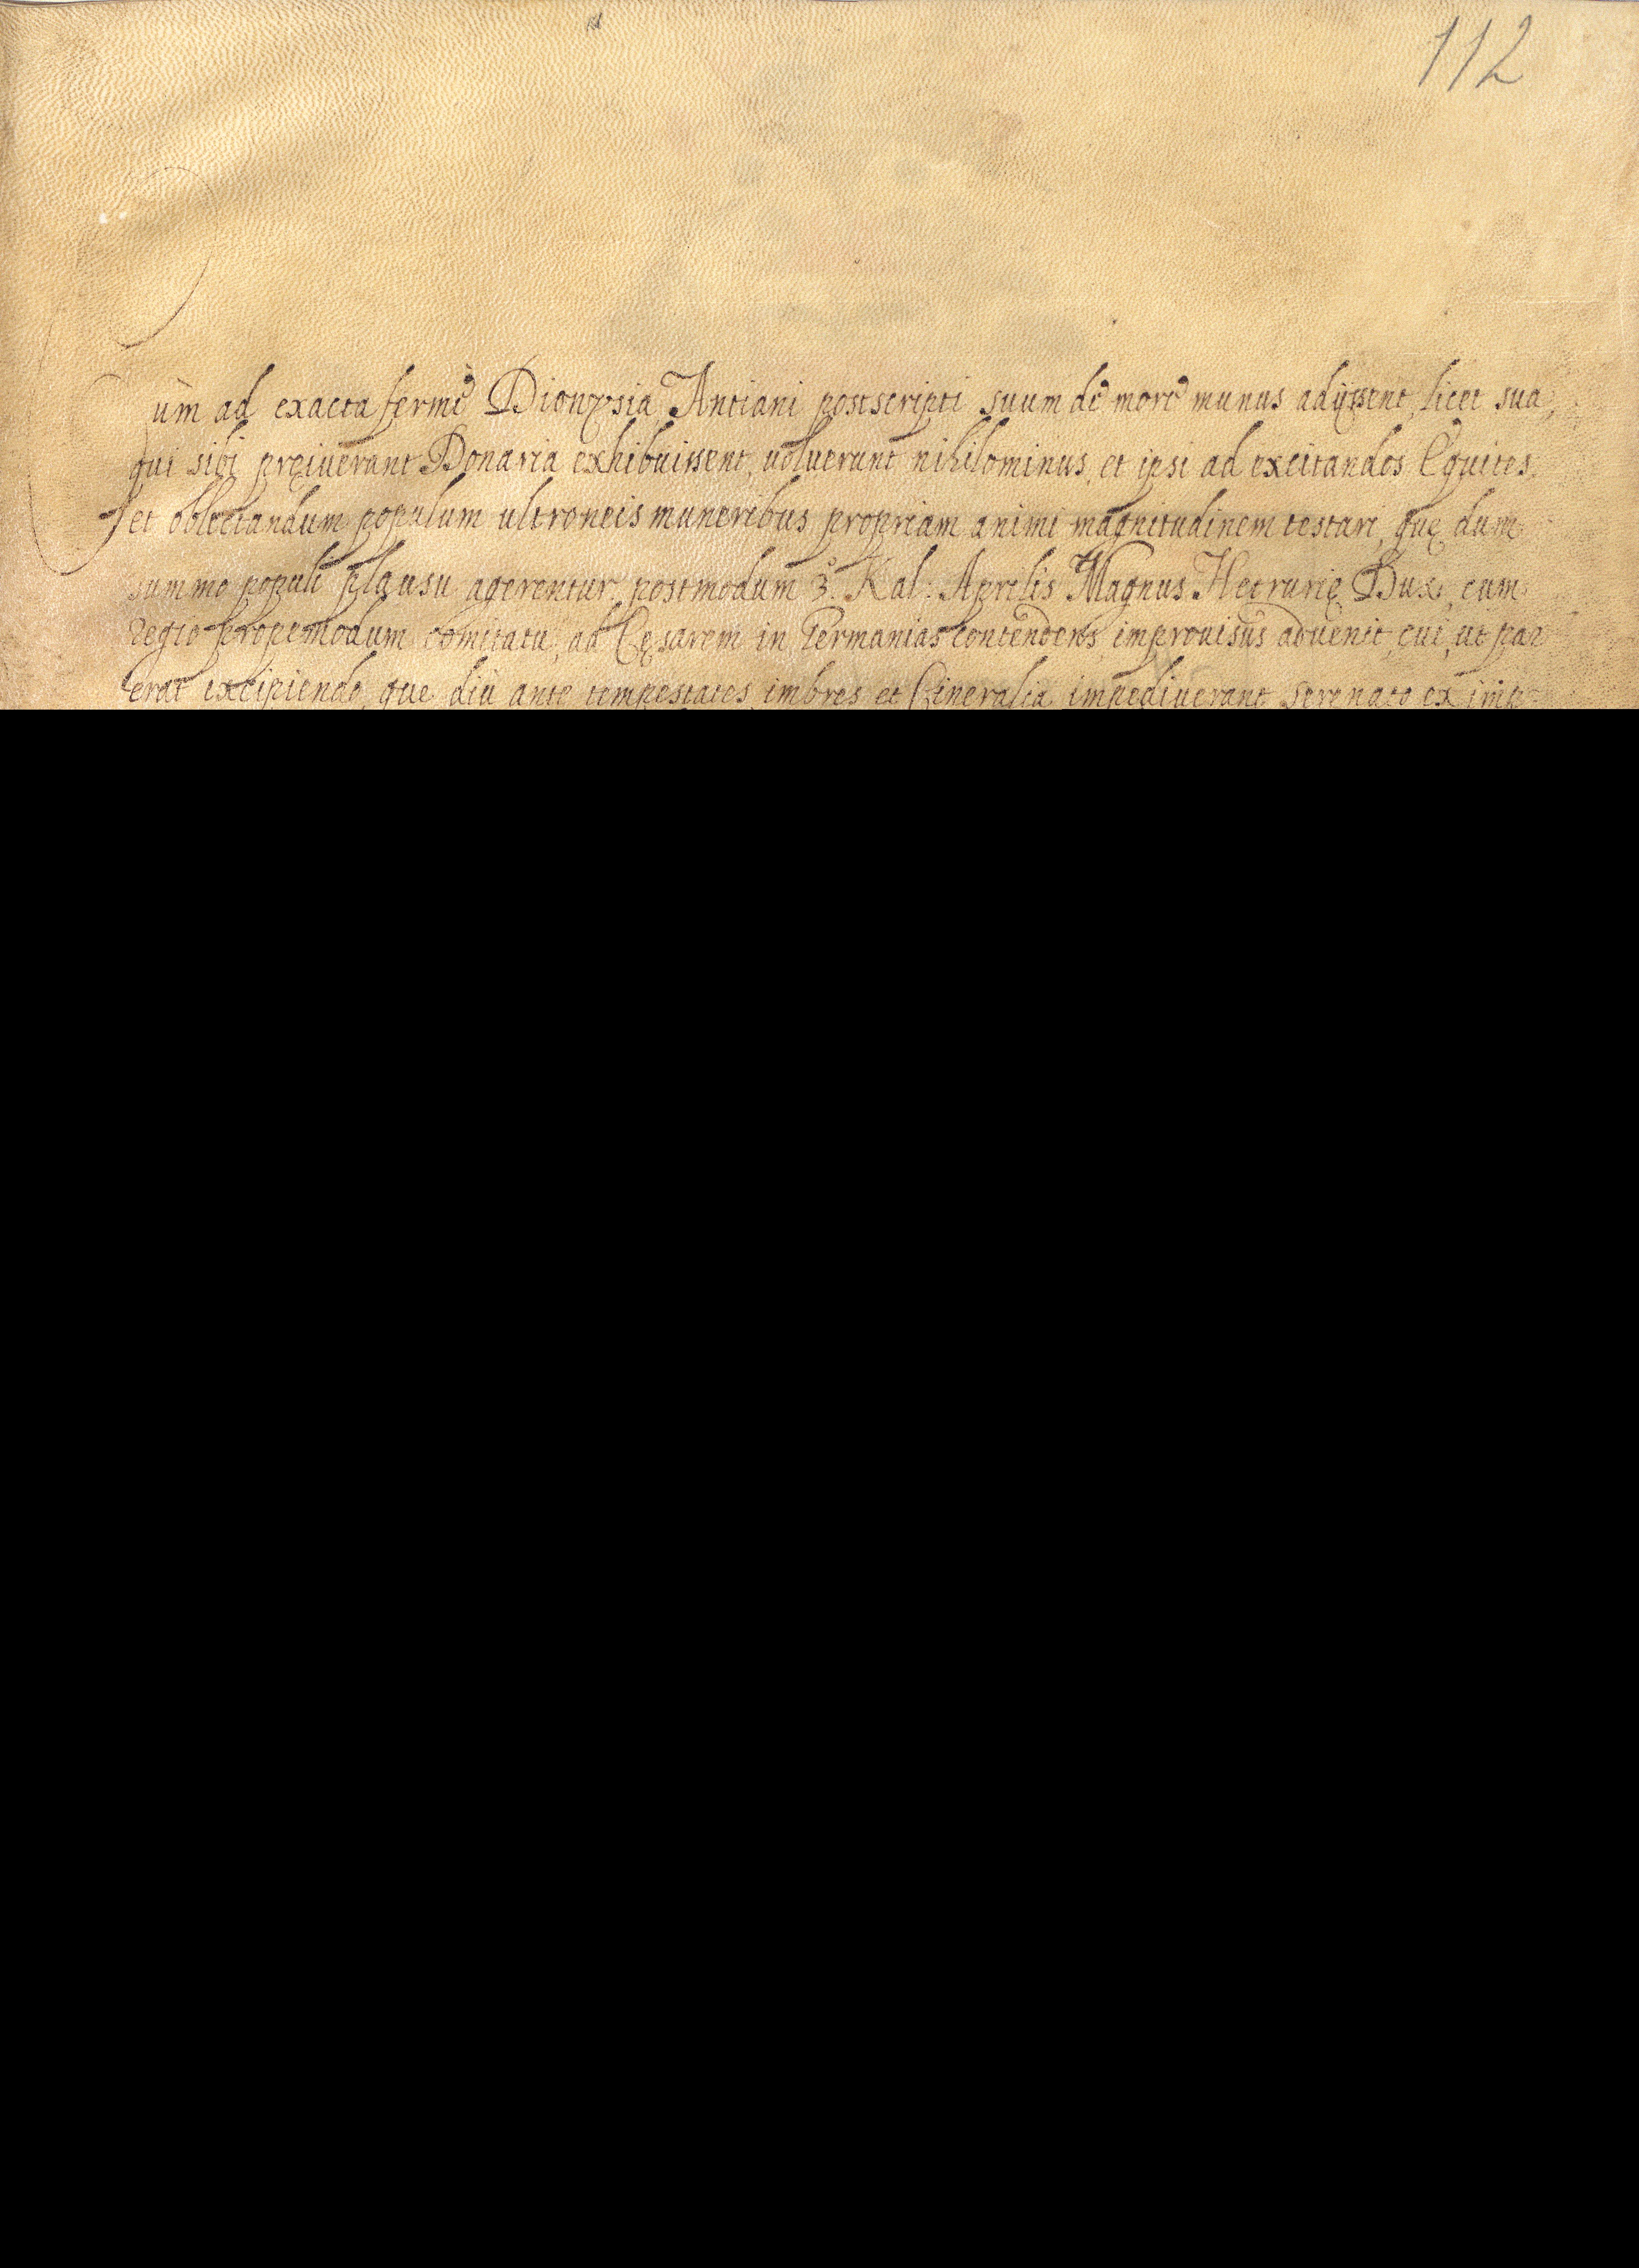 112
Cùm ad exacta fermè Dionysia Antiani postscripti suum dè morè munus adijssent, licet sua,
qui sibi pręiuerant Donaria exhibuissent, uoluerunt nihilominus, et ipsi ad excitandos Equites,
et oblectandum populum ultroneis muneribus propriam animi magnitudinem testari, quę dum
summo populi plausu agerentur, postmodum 3.º Kal: Aprilis Magnus Hetrurię Dux, cum
regio propemodum comitatu, ad Cęsarem in Germanias contendens, improuisus aduenit, cui, ut par
erat excipiendo, que diù ante tempestates, imbres et Cineralia impediuerant serenato ex imp